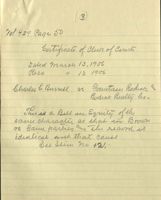 3
Vol 429 Page 50
Certificate of Clerk of Court
Dated March 13, 1906
Recd " 15 1906
Charles C. Burrell vs Fountain
Realty Co.
This is a Bill in Equity of the
same character as that in
same parties & the record is
identical with that cause
See Item No 121.